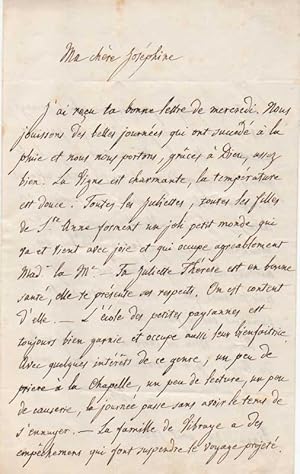 Ma chère Joséphine
J'ai reçu ta bonne lettre de mercredi. Nous
jouissons des belles journées qui ont succédé à la
pluie et nous nous portons, grâces à Dieu, assez
bien. La Vigne est charmante, la température
est douce. Toutes les juliettes, toutes les filles
de Ste Anne forment un joli petit monde qui
va et vient avec joie et qui occupe agréablement
Mad. la Mse — Ta Juliette Thérèse est en bonne
santé, elle te présente ses respects. On est content
d'elle. — L'école des petites paysannes est
toujours bien garnie et occupe aussi leur bienfaitrice.
Avec quelques intérêts de ce genre, un peu de
prière à la Chapelle, un peu de lecture, un peu
de causerie, la journée passe sans avoir le tems de
s'ennuyer. — La famille de Vibraye a des
empêchemens qui font suspendre le voyage projeté.